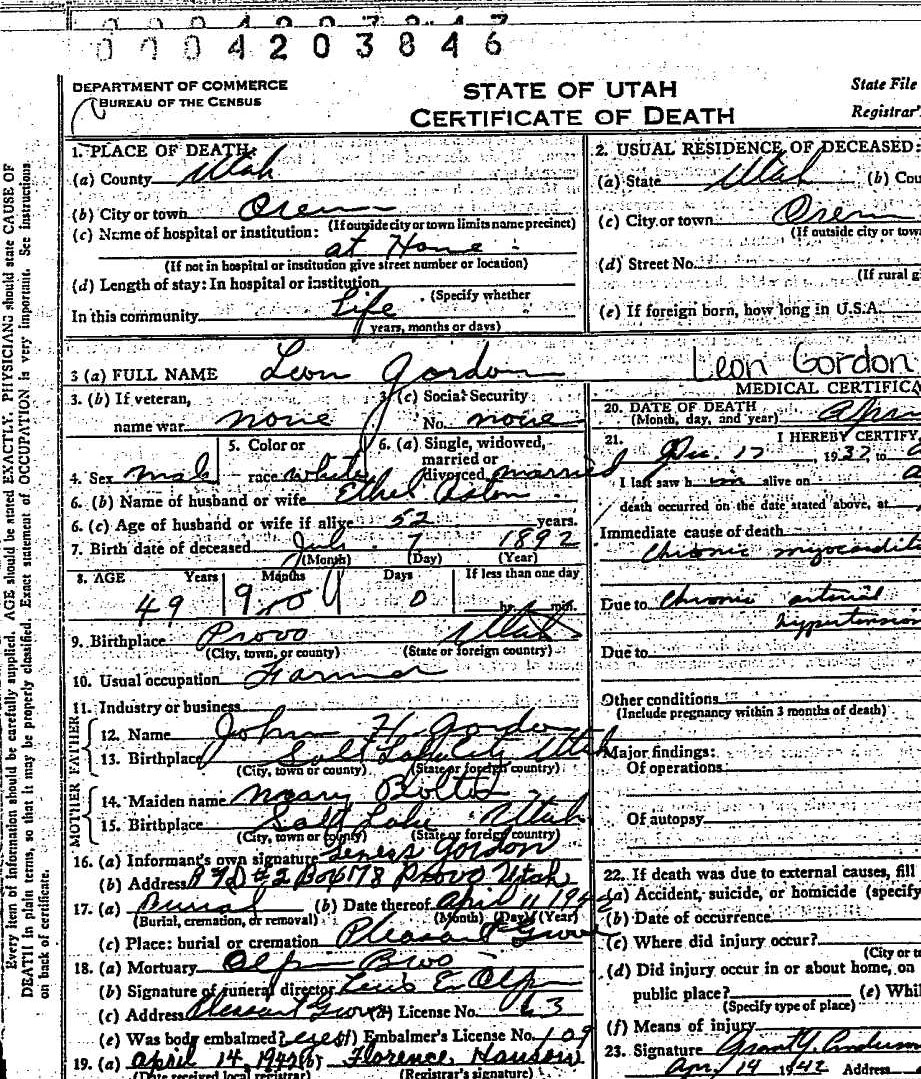 0004203846
DEPARTMENT OF COMMERCE
BUREAU OF THE CENSUS
STATE OF UTAH
CERTIFICATE OF DEATH
State File
Registrar'
1. PLACE OF DEATH:
(a) County Utah
(b) City or town Orem
(If outside city or town limits name precinct)
(c) Name of hospital or institution:
at Home
(If not in hospital or institution give street number or location)
(d) Length of stay: In hospital or institution
(Specify whether
In this community Life
years, months or days)
2. USUAL RESIDENCE OF DECEASED:
(a) State Utah (b) Cou
(c) City or town Orem
(If outside city or tow
(d) Street No.
(If rural g
(e) If foreign born, how long in U.S.A.
3 (a) FULL NAME Leon Gordon
Leon Gordon
3. (b) If veteran, name war none
3 (c) Social Security No. none
4. Sex male
5. Color or race white
6. (a) Single, widowed, married or divorced married
6. (b) Name of husband or wife Ethel
6. (c) Age of husband or wife if alive 52 years.
7. Birth date of deceased July 7 1892
(Month) (Day) (Year)
8. AGE Years Months Days If less than one day
49 9 0 hr. min.
9. Birthplace Provo Utah
(City, town, or county) (State or foreign country)
10. Usual occupation Farmer
11. Industry or business
FATHER
12. Name John H. Gordon
13. Birthplace Salt Lake City Utah
(City, town or county) (State or foreign country)
MOTHER
14. Maiden name Mary
15. Birthplace Salt Lake Utah
(City, town or county) (State or foreign country)
16. (a) Informant's own signature Gordon
(b) Address RFD #2 Box 178 Provo Utah
17. (a) Burial (b) Date thereof April 11 1942
(Burial, cremation, or removal) (Month) (Day) (Year)
(c) Place: burial or cremation Pleasant Grove
18. (a) Mortuary Olpin Bros
(b) Signature of funeral director Olpin
(c) Address Pleasant Grove License No. 63
(e) Was body embalmed? yes (f) Embalmer's License No. 109
19. (a) April 14, 1942 (b) Florence Hanson
(Date received local registrar) (Registrar's signature)
MEDICAL CERTIFICA
20. DATE OF DEATH
(Month, day, and year) Apri
21. I HEREBY CERTIFY,
Dec. 17, 1937 to
I last saw him alive on
death occurred on the date stated above, at
Immediate cause of death
Chronic myocardit
Due to Chronic arterial
hypertension
Due to
Other conditions
(Include pregnancy within 3 months of death)
Major findings:
Of operations
Of autopsy
22. If death was due to external causes, fill
(a) Accident, suicide, or homicide (specify
(b) Date of occurrence
(c) Where did injury occur?
(City or to
(d) Did injury occur in or about home, on
public place? (e) Whil
(Specify type of place)
(f) Means of injury
23. Signature Grant Y. Anderson
Apr. 14 1942 Address
Every item of information should be carefully supplied. AGE should be stated EXACTLY. PHYSICIANS should state CAUSE OF
DEATH in plain terms, so that it may be properly classified. Exact statement of OCCUPATION is very important. See instructions
on back of certificate.